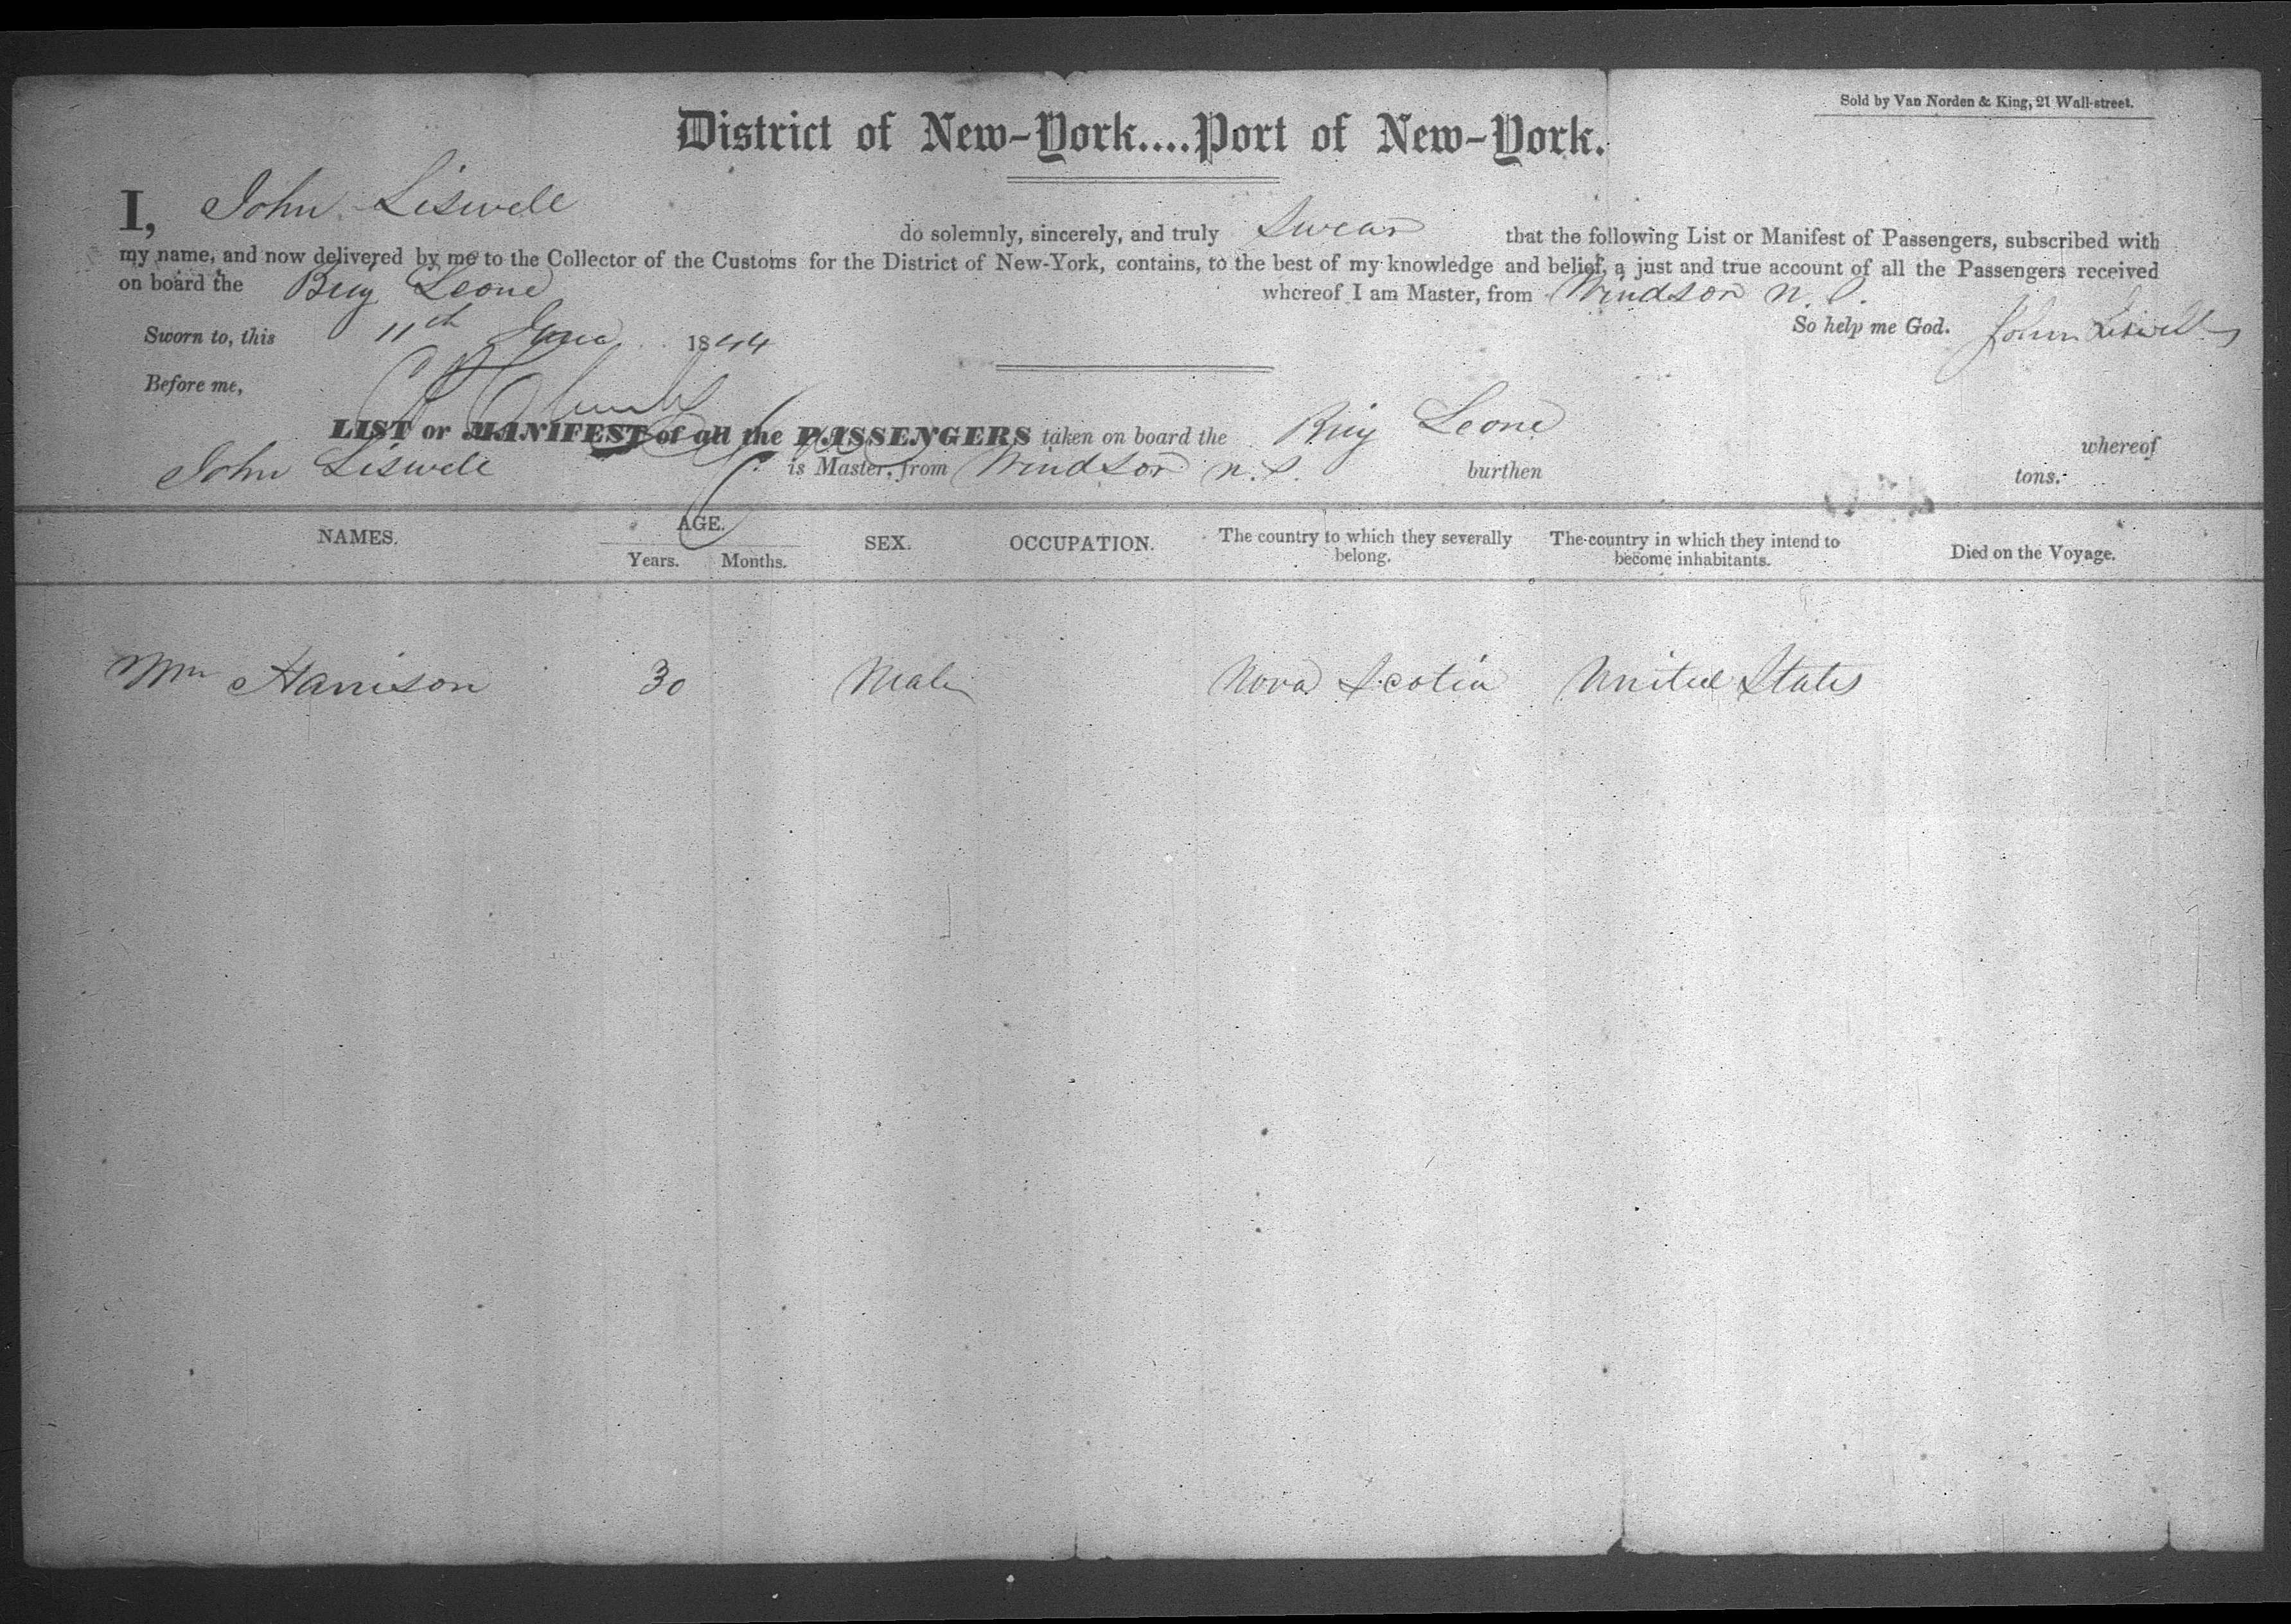 Sold by Van Norden & King, 21 Wall-street.
District of New-York....Port of New-York.
I, John Liswell do solemnly, sincerely, and truly Swear that the following List or Manifest of Passengers, subscribed with
my name, and now delivered by me to the Collector of the Customs for the District of New-York, contains, to the best of my knowledge and belief, a just and true account of all the Passengers received
on board the Brig Leone whereof I am Master, from Windsor N.S.
So help me God. John Liswell
Sworn to, this 11th June 1844
Before me,
LIST or MANIFEST of all the PASSENGERS taken on board the Brig Leone whereof
John Liswell is Master, from Windsor N.S. burthen tons.
NAMES. AGE. SEX. OCCUPATION. The country to which they severally belong. The country in which they intend to become inhabitants. Died on the Voyage.
Years. Months.
Wm Harrison 30 Male Nova Scotia United States